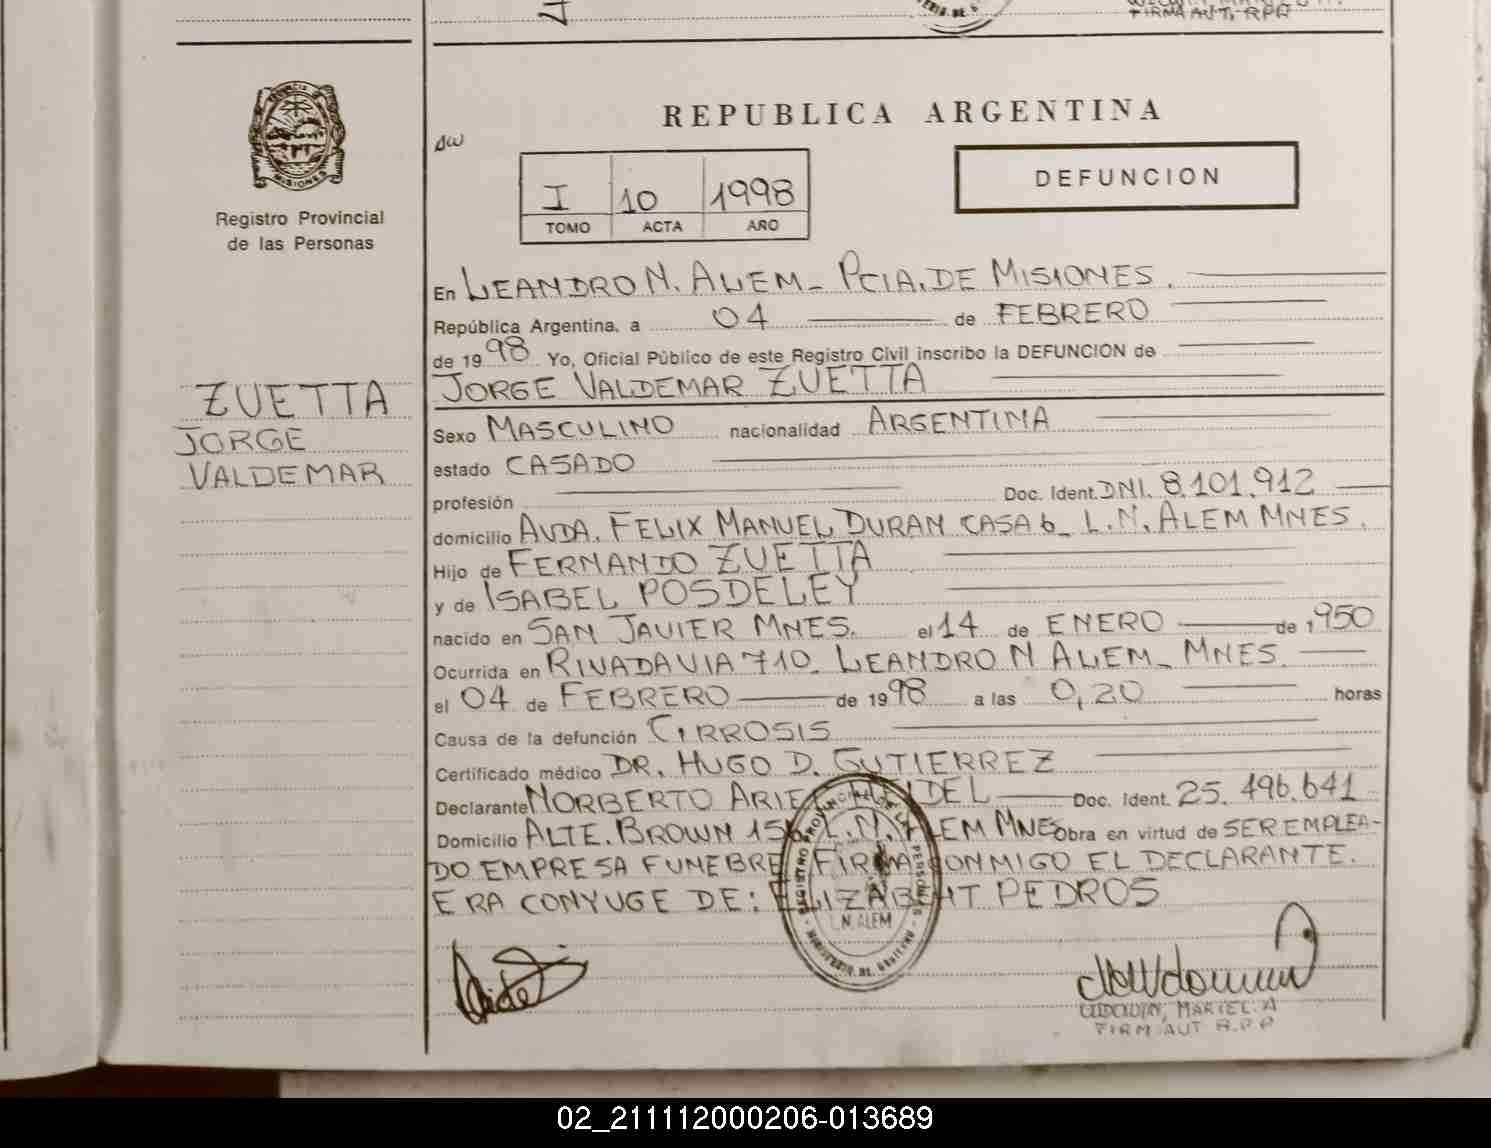 FIRMA AUT. RPP
REPUBLICA ARGENTINA
I 10 1998
TOMO ACTA AÑO
DEFUNCION
MISIONES
Registro Provincial
de las Personas
ZUETTA
JORGE
VALDEMAR
En LEANDRO N. ALEM - PCIA. DE MISIONES.
República Argentina, a 04 de FEBRERO
de 1998 Yo, Oficial Público de este Registro Civil inscribo la DEFUNCION de
JORGE VALDEMAR ZUETTA
Sexo MASCULINO nacionalidad ARGENTINA
estado CASADO
profesión Doc. Ident. DNI. 8.101.912
domicilio AVDA. FELIX MANUEL DURAN CASA 6 - L.N. ALEM MNES.
Hijo de FERNANDO ZUETTA
y de ISABEL POSDELEY
nacido en SAN JAVIER MNES. el 14 de ENERO de 1950
Ocurrida en RIVADAVIA 710 - LEANDRO N ALEM - MNES.
el 04 de FEBRERO de 1998 a las 0,20 horas
Causa de la defunción CIRROSIS
Certificado médico DR. HUGO D. GUTIERREZ
Declarante NORBERTO ARIEL Doc. Ident. 25.496.641
Domicilio ALTE. BROWN L.N. ALEM MNES Obra en virtud de SER EMPLEA-
DO EMPRESA FUNEBRE. FIRMA CONMIGO EL DECLARANTE.
ERA CONYUGE DE: ELIZABEHT PEDROS
REGISTRO PROVINCIAL DE LAS PERSONAS
L.N. ALEM
MINISTERIO DE GOBIERNO
MARIEL A
FIRM AUT R.P.P
02_211112000206-013689